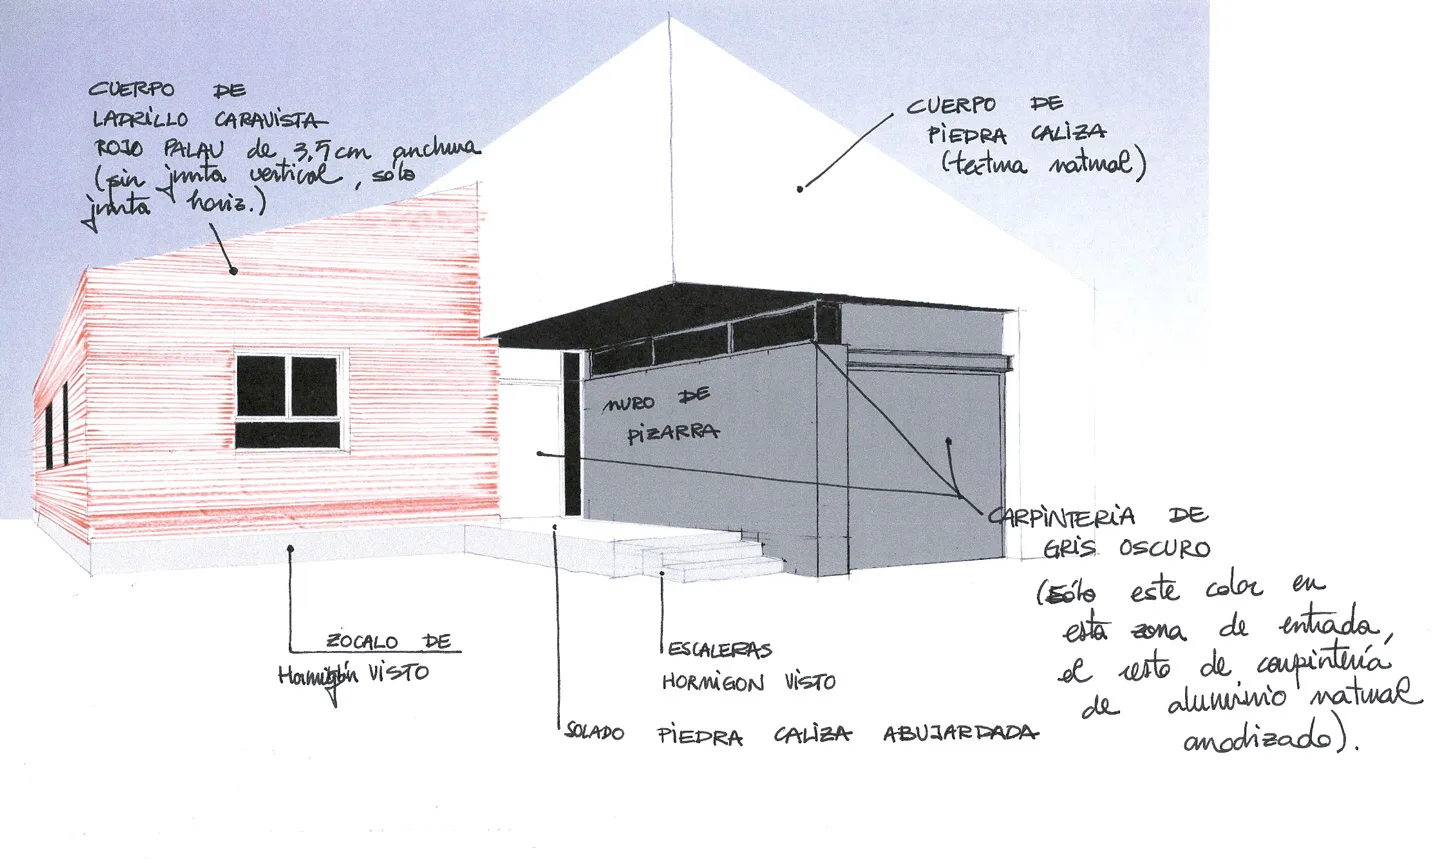 CUERPO DE
LADRILLO CARAVISTA
ROJO PALAU de 3,5 cm anchura
(sin junta vertical, sólo
junta horiz.)
CUERPO DE
PIEDRA CALIZA
(textura natural)
MURO DE
PIZARRA
CARPINTERIA DE
GRIS OSCURO
(Sólo este color en
esta zona de entrada,
el resto de carpintería
de aluminio natural
anodizado).
ZOCALO DE
Hormigón VISTO
ESCALERAS
HORMIGON VISTO
SOLADO PIEDRA CALIZA ABUJARDADA